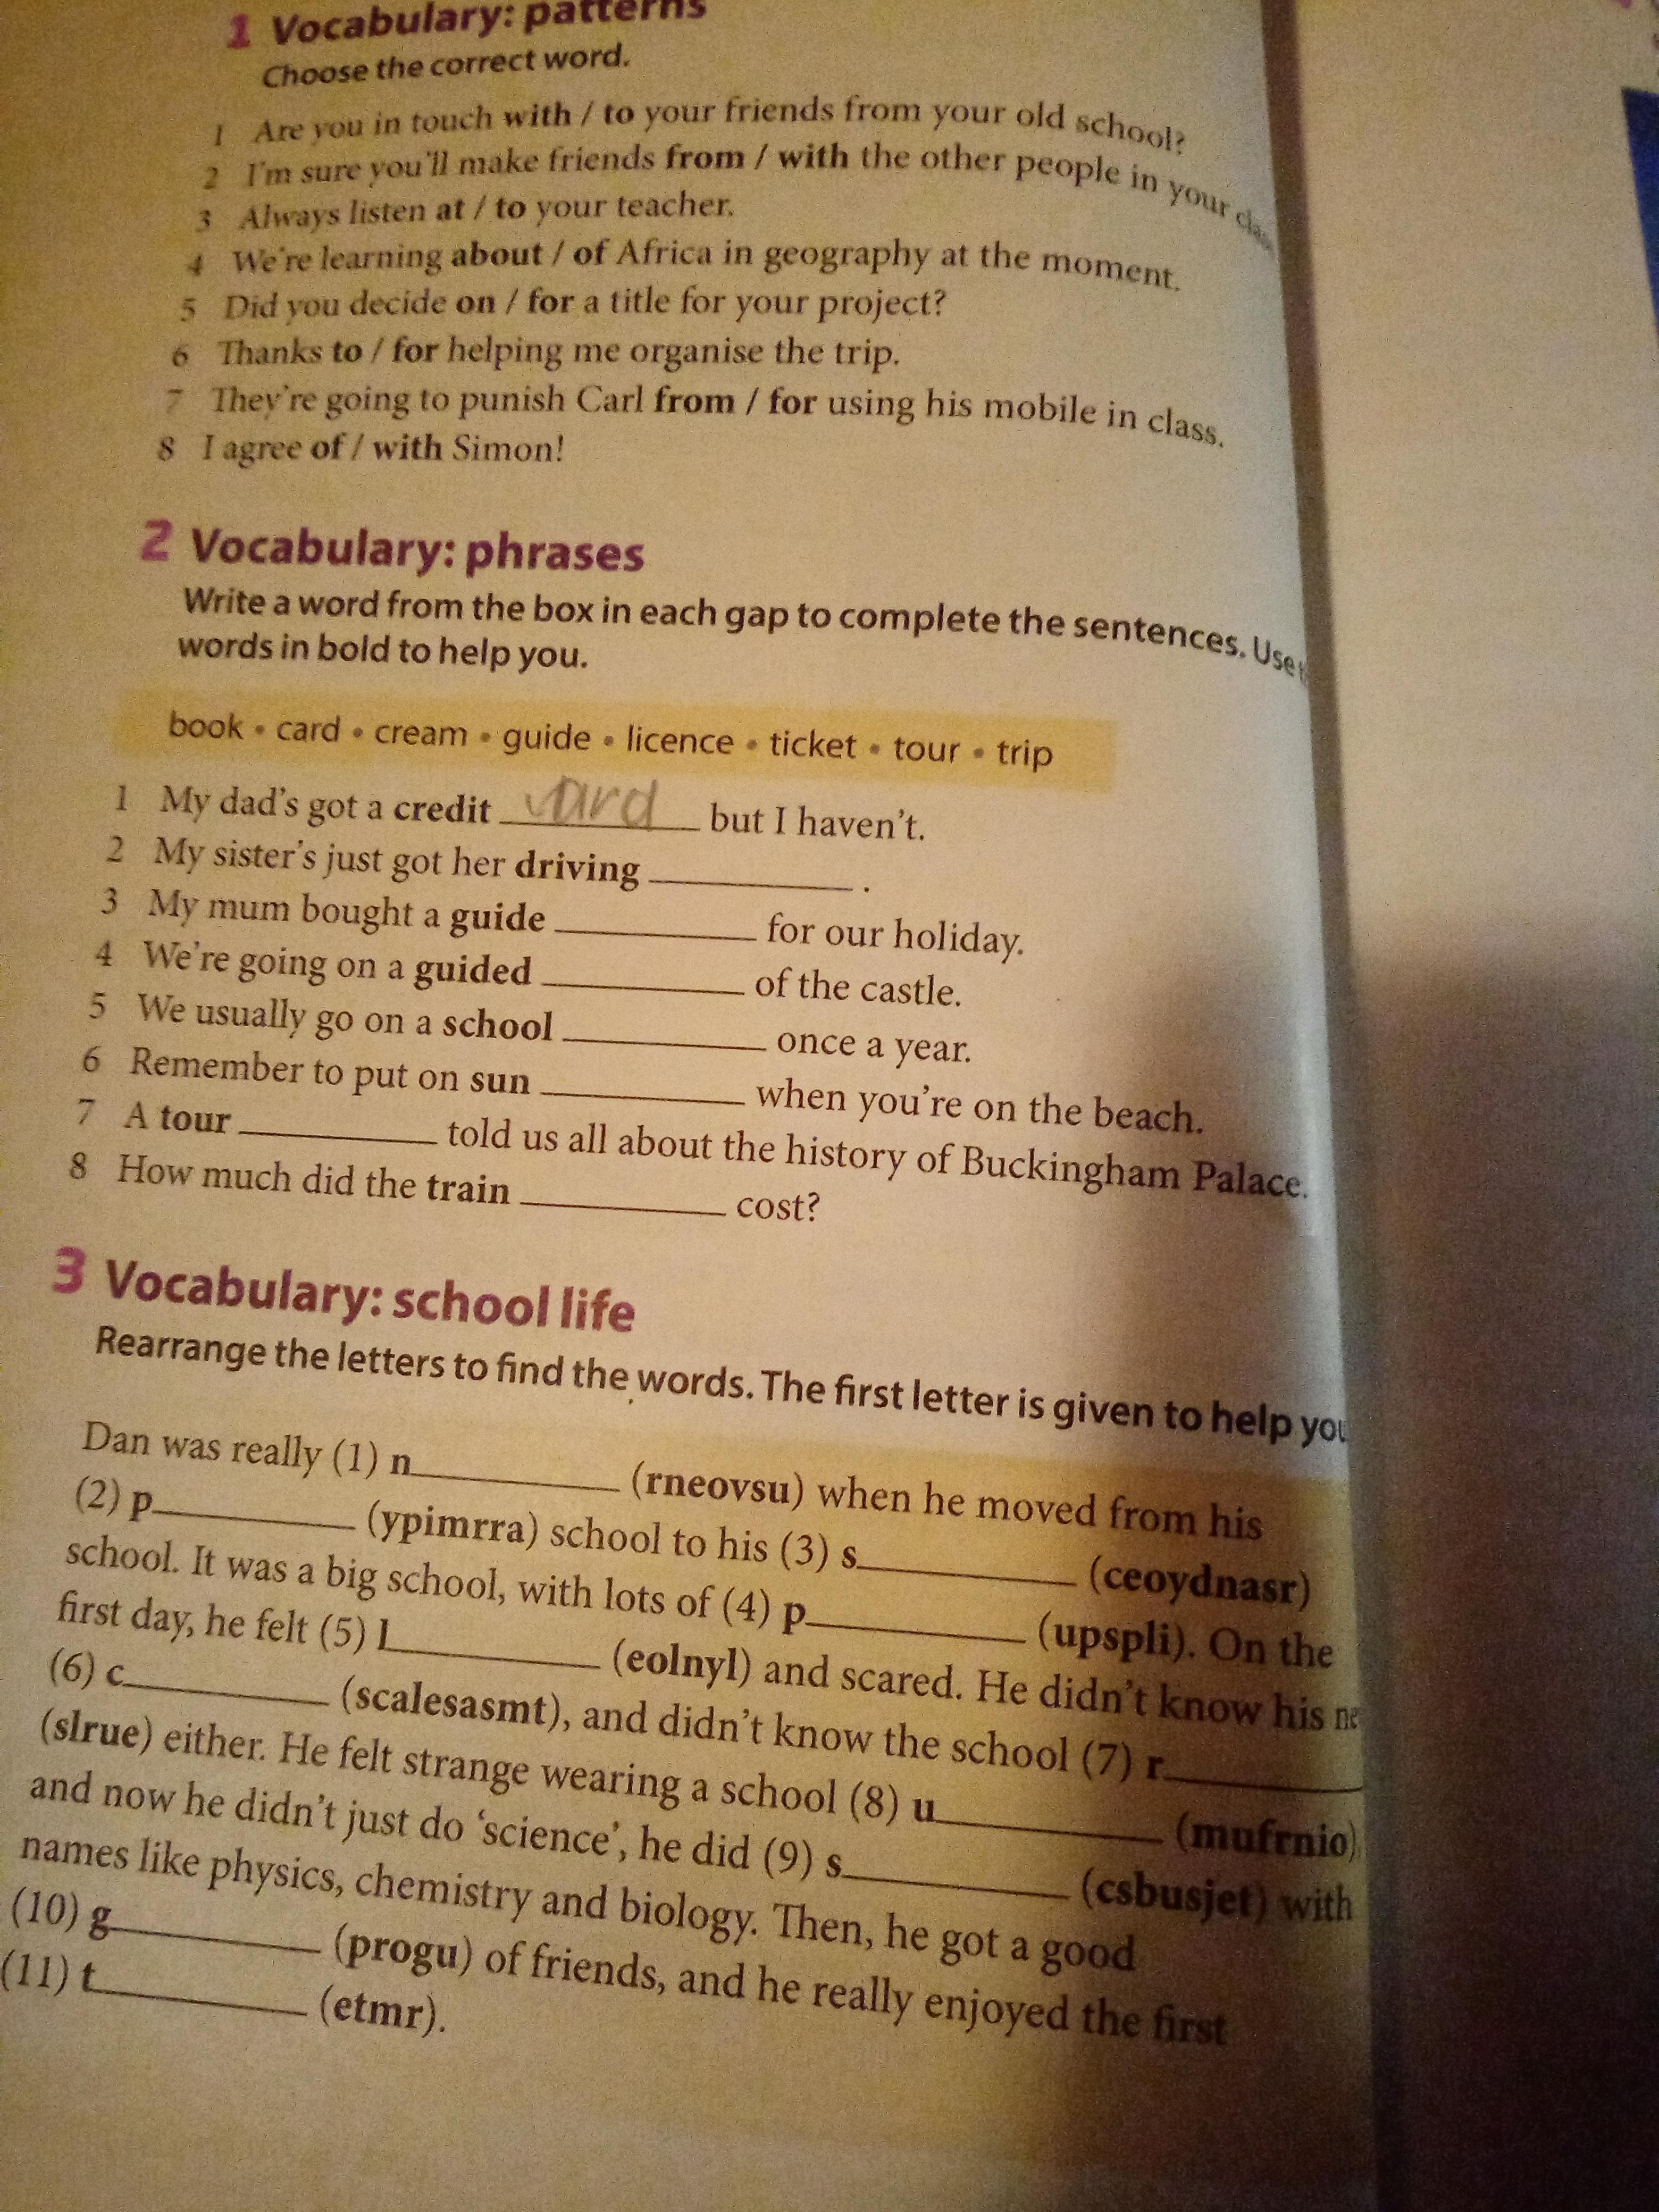 1 Vocabulary: patterns
Choose the correct word.
1 Are you in touch with / to your friends from your old school?
2 I'm sure you'll make friends from / with the other people in your
3 Always listen at / to your teacher.
4 We're learning about / of Africa in geography at the moment.
5 Did you decide on / for a title for your project?
6 Thanks to / for helping me organise the trip.
7 They're going to punish Carl from / for using his mobile in class.
8 I agree of / with Simon!
2 Vocabulary: phrases
Write a word from the box in each gap to complete the sentences. Use
words in bold to help you.
book • card • cream • guide • licence • ticket • tour • trip
1 My dad's got a credit card but I haven't.
2 My sister's just got her driving ________ .
3 My mum bought a guide ________ for our holiday.
4 We're going on a guided ________ of the castle.
5 We usually go on a school ________ once a year.
6 Remember to put on sun ________ when you're on the beach.
7 A tour ________ told us all about the history of Buckingham Palace.
8 How much did the train ________ cost?
3 Vocabulary: school life
Rearrange the letters to find the words. The first letter is given to help you
Dan was really (1) n________ (rneovsu) when he moved from his
(2) p________ (ypimrra) school to his (3) s________ (ceoydnasr)
school. It was a big school, with lots of (4) p________ (upspli). On the
first day, he felt (5) l________ (eolnyl) and scared. He didn't know his
(6) c________ (scalesasmt), and didn't know the school (7) r________
(slrue) either. He felt strange wearing a school (8) u________ (mufrnio)
and now he didn't just do 'science', he did (9) s________ (csbusjet) with
names like physics, chemistry and biology. Then, he got a good
(10) g________ (progu) of friends, and he really enjoyed the first
(11) t________ (etmr).